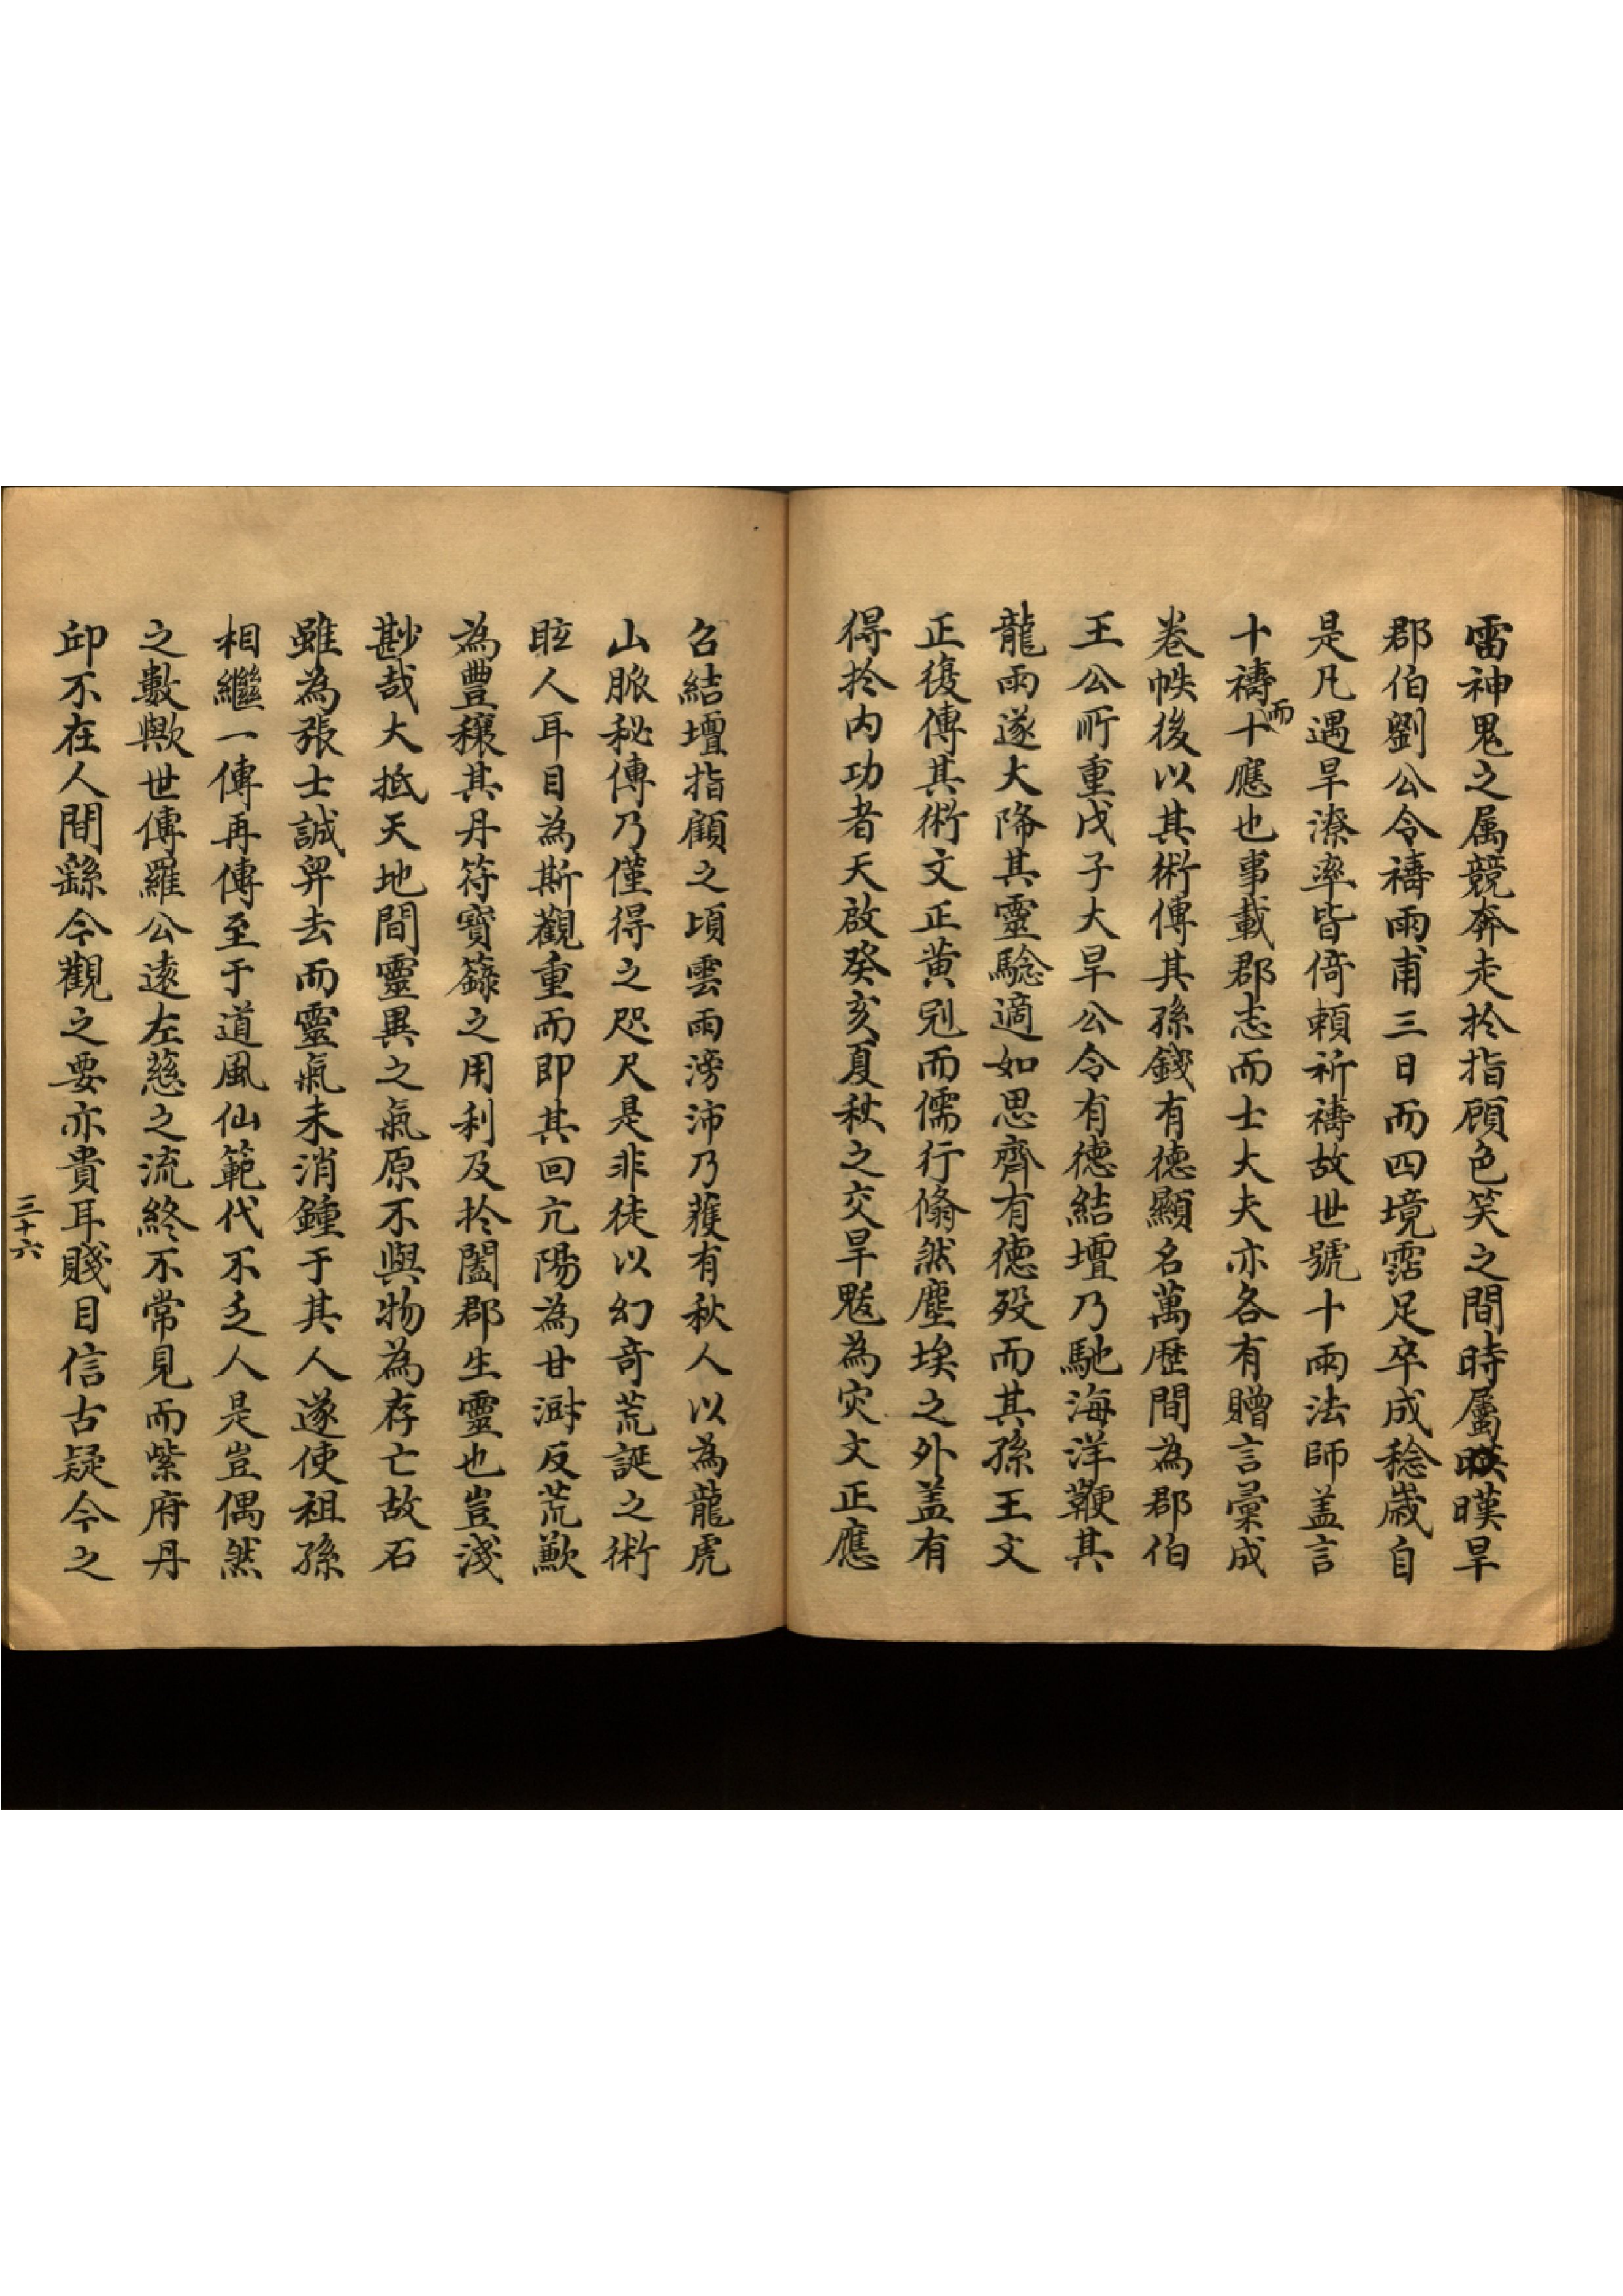 雷神鬼之属競奔走扵指顧色笑之間時屬暵旱
郡伯劉公令禱雨甫三日而四境霑足卒成稔歲自
是凡遇旱潦率皆倚頼祈禱故世號十雨法師盖言
十禱而十應也事載郡志而士大夫亦各有贈言彚成
卷帙後以其術傳其孫錢有德顯名萬歷間為郡伯
王公所重戊子大旱公令有德結壇乃馳海洋鞭其
龍雨遂大降其靈驗適如思齊有德殁而其孫王文
正復傳其術文正黄冠而儒行翛然塵埃之外盖有
得扵内功者天啟癸亥夏秋之交旱魃為灾文正應
召結壇指顧之頃雲雨滂沛乃蒦有秋人以為龍虎
山脈秘傳乃僅得之咫尺是非徒以幻竒荒誕之術
眩人耳目為斯觀重而即其回亢陽為甘澍反荒歉
為豊穣其丹符寳籙之用利及扵闔郡生靈也豈淺
尠哉大抵天地間靈異之氣原不與物為存亡故石
雖為張士誠舁去而靈氣未消鍾于其人遂使祖孫
相繼一傳再傳至于道風仙範代不乏人是豈偶然
之數歟世傳羅公遠左慈之流終不常見而紫府丹
邱不在人間繇今觀之要亦貴耳賤目信古疑今之
三十六